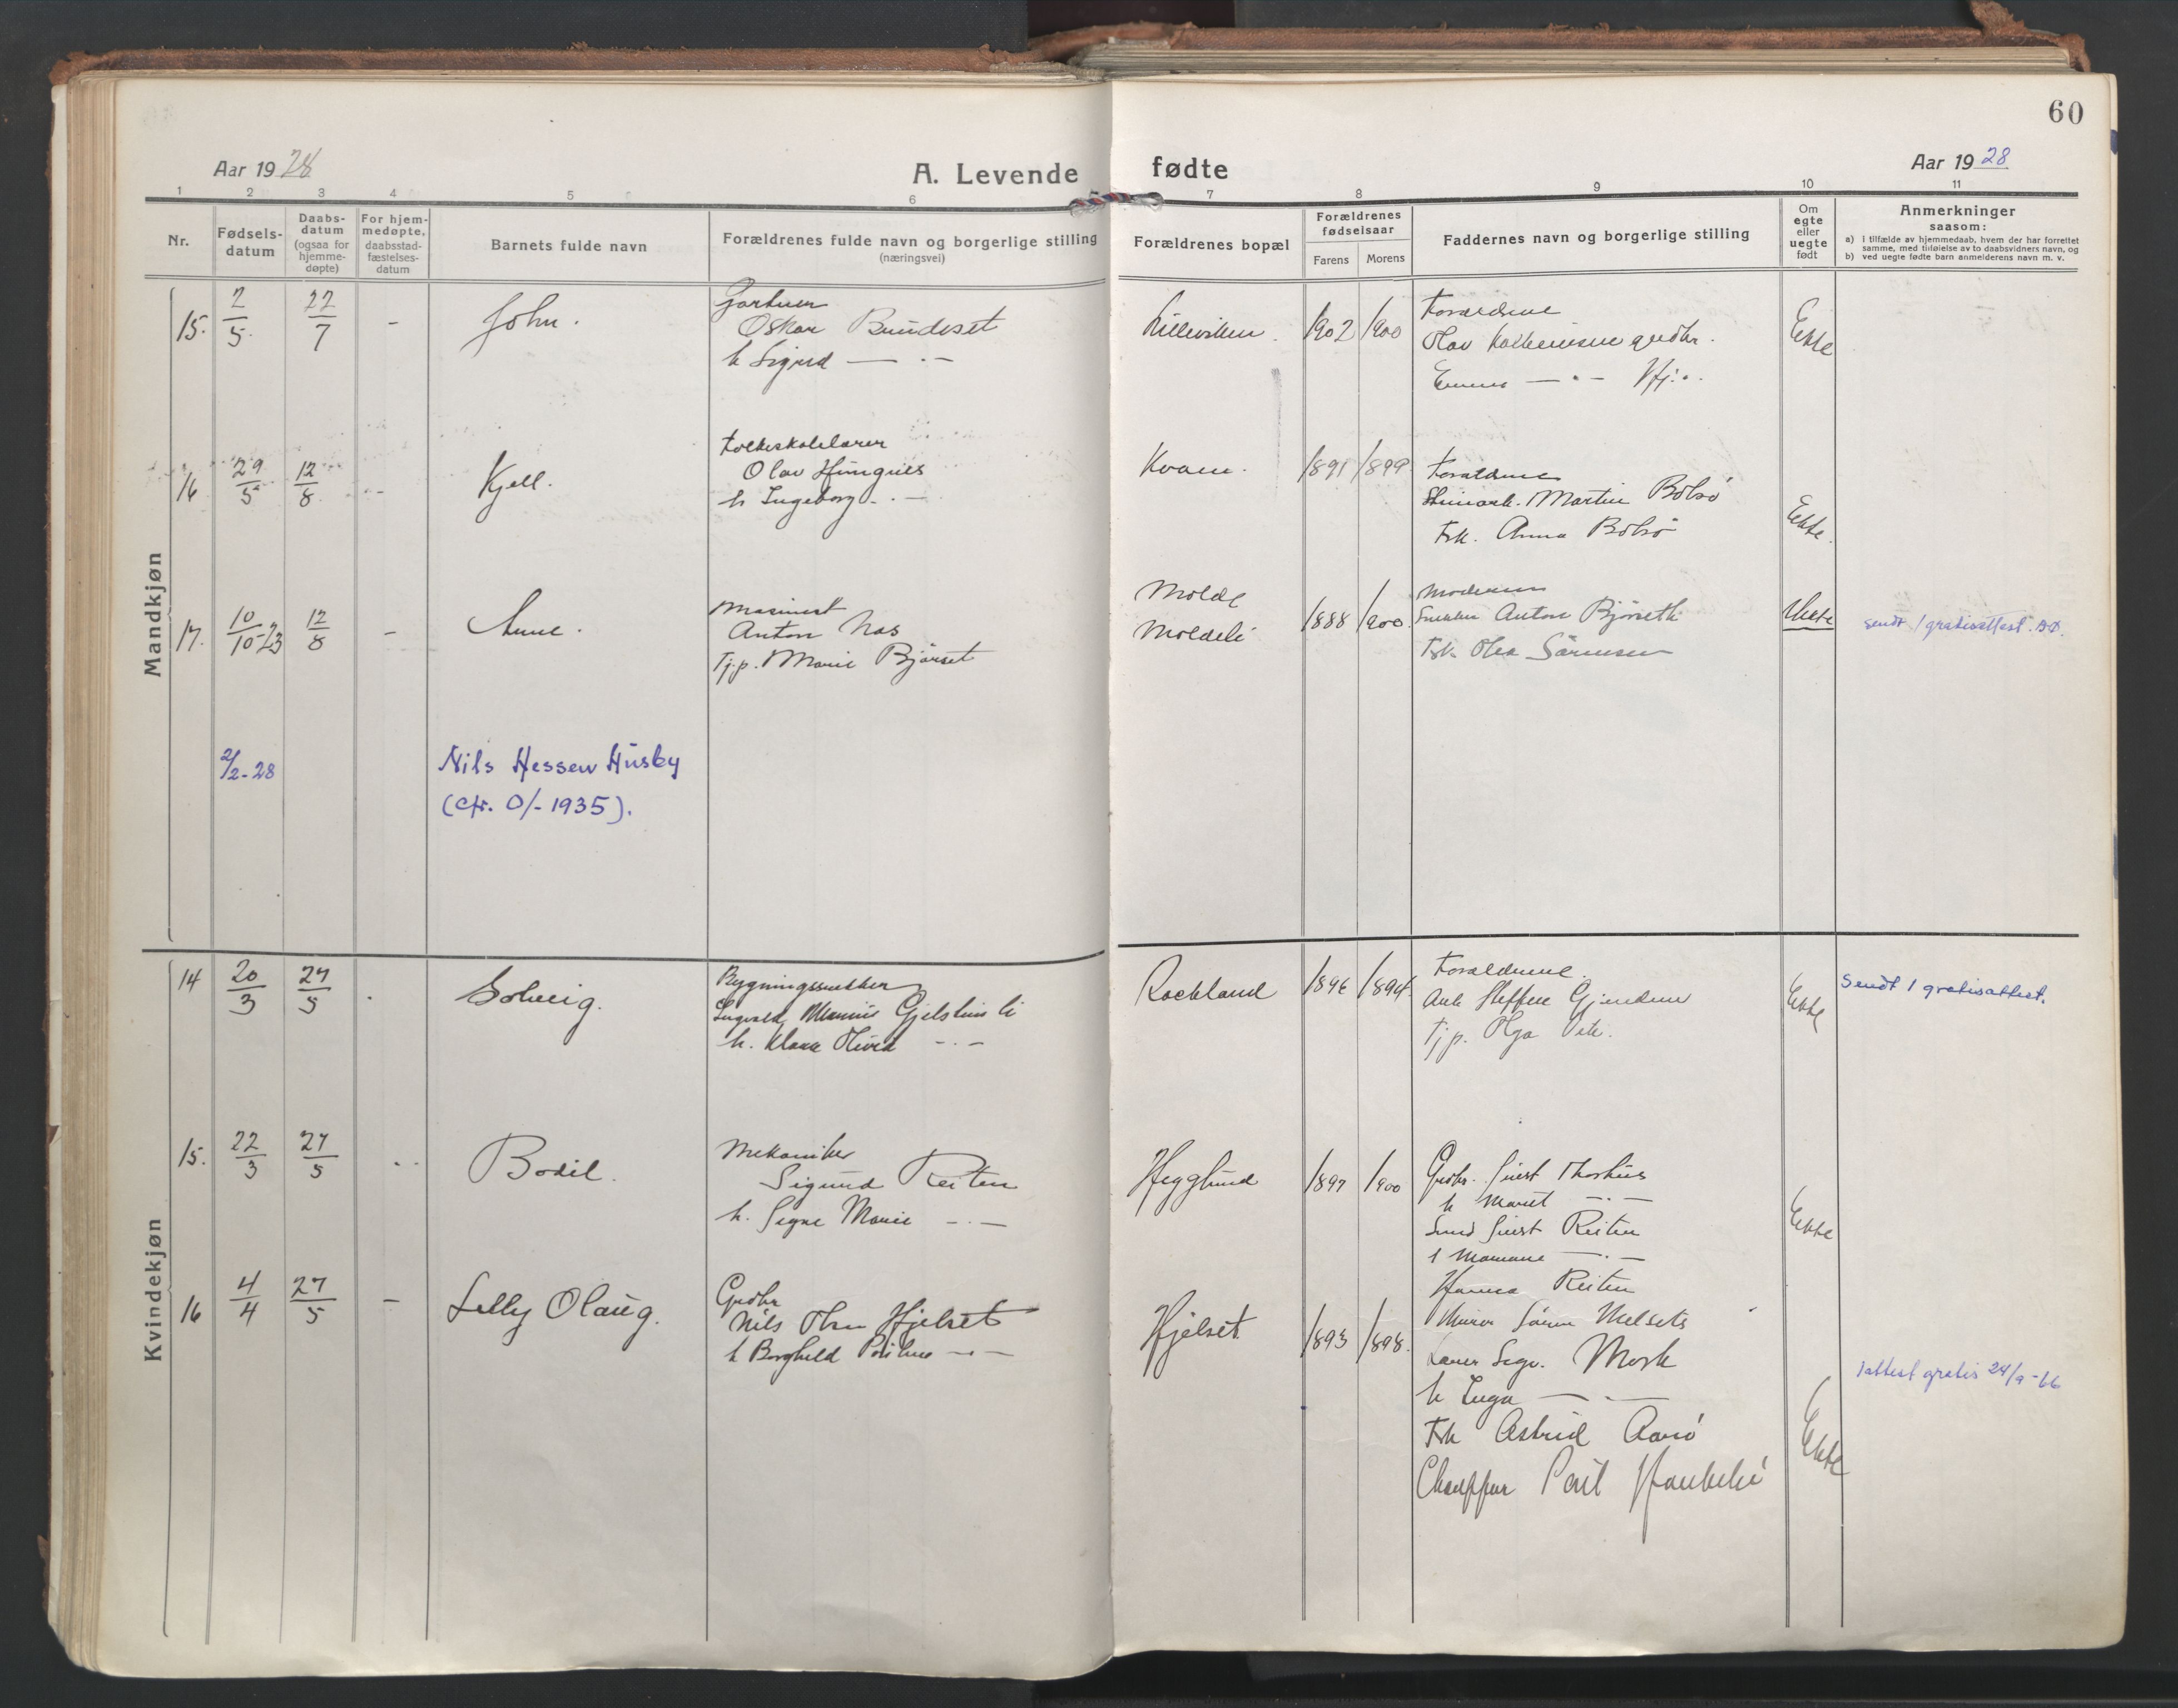 60
Aar 1928
A. Levende fødte
Aar 1928
1 2 3 4 5 6 7 8 9 10 11
Nr.
Fødsels-
datum
Daabs-
datum
(ogsaa for
hjemme-
døpte)
For hjem-
medøpte,
daabsstad-
fæstelses-
datum
Barnets fulde navn
Forældrenes fulde navn og borgerlige stilling
(næringsvei)
Forældrenes bopæl
Forældrenes
fødselsaar
Farens Morens
Faddernes navn og borgerlige stilling
Om
egte
eller
uegte
født
Anmerkninger
saasom:
a) i tilfælde av hjemmedaab, hvem der har forrettet
samme, med tilføielse av to daabsvidners navn, og
b) ved uegte fødte barn anmelderens navn m. v.
Mandkjøn
15. 2/5. 22/7 -
John.
Gartner
Oskar Bundeset
h Sigrid — . —
Lilleviken. 1902 1900
Forældrene
Olav grdbr.
Emma — . —
Ekte
16 29/5 12/8
Kjell.
Folkeskolelærer
Olav
h Ingeborg - . —
Kvam. 1891 1899
Forældrene
Martin Bolsø
Frk. Anna Bolsø
Ekte.
17. 10/10-23 12/8 -
Arne.
Masinist
Anton Nas
Tj.p. Marie Bjørset
Molde
Moldeli
1888 1900.
Moderen
Snekker Anton Bjørseth
Frk Olea Sørensen
Uekte
sendt 1 gratisattest.
2/2-28
Nils Hessen Husby
(cfr. O/- 1935).
Kvindekjøn
14 20/3 27/5 .
Solveig.
Bygningssnekker
Ingvald Gjelstenli
h. Klara — . —
Rockland 1896 1894
Forældrene.
Steffen Gjendem
Tj.p. Olga
Ekte
Sendt 1 gratisattest.
15. 22/3 27/5 . .
Bodil.
Mekaniker
Sigurd Reiten
h. Signe Marie — . —
Hegglund 1897 1900
Grdbr. Sivert Thorhus
h Marit — . —
Sivert Reiten
— . —
Hanna Reiten
Ekte
16 4/4 27/5 —
Lilly Olaug.
Grdbr
Nils Olsen Hjelset
h Borghild — . —
Hjelset 1893 1898.
Murer Søren Melseter
Lærer Sigv. Mork
h Inga — . —
Frk Astrid Aarø
Chauffør Poul
Ekte
1 attest gratis 24/9-66